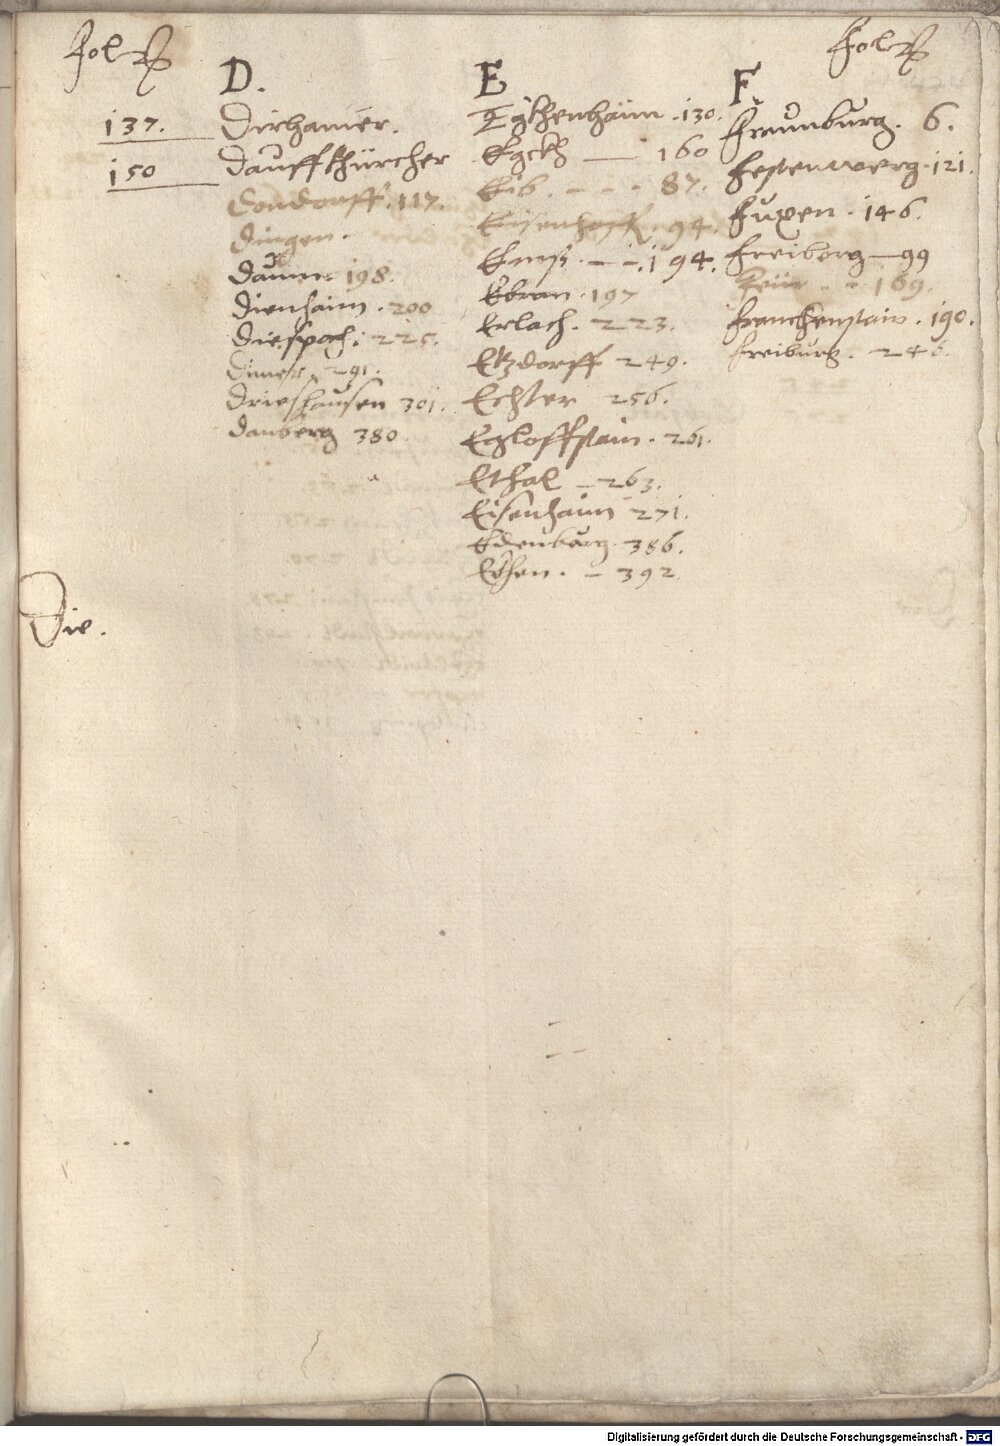 Fol
D.
137. Dirhamer.
150 Dauffkhürcher
Dondorff. 117.
Dingen.
Daum 198.
Dienhaim. 200
Diespach. 225.
291.
Drieshausen 301.
Danberg 380.
Die.
E
Egkhenhaim. 130.
Egckh — 160
Eib. - - - 87.
Eisenhoff. 94.
194.
Ebran. 197
Erlach. 223.
Etzdorff 249.
Echter 256.
Egloffstain. 261.
Ethal - 263.
Eisenhaim 271.
Edenburg. 386.
392
Fol
F
Fraunburg. 6.
121.
Fuxen. 146.
Freiberg — 99
169.
Franckhenstain. 190.
Freiburg.
Digitalisierung gefördert durch die Deutsche Forschungsgemeinschaft - DFG